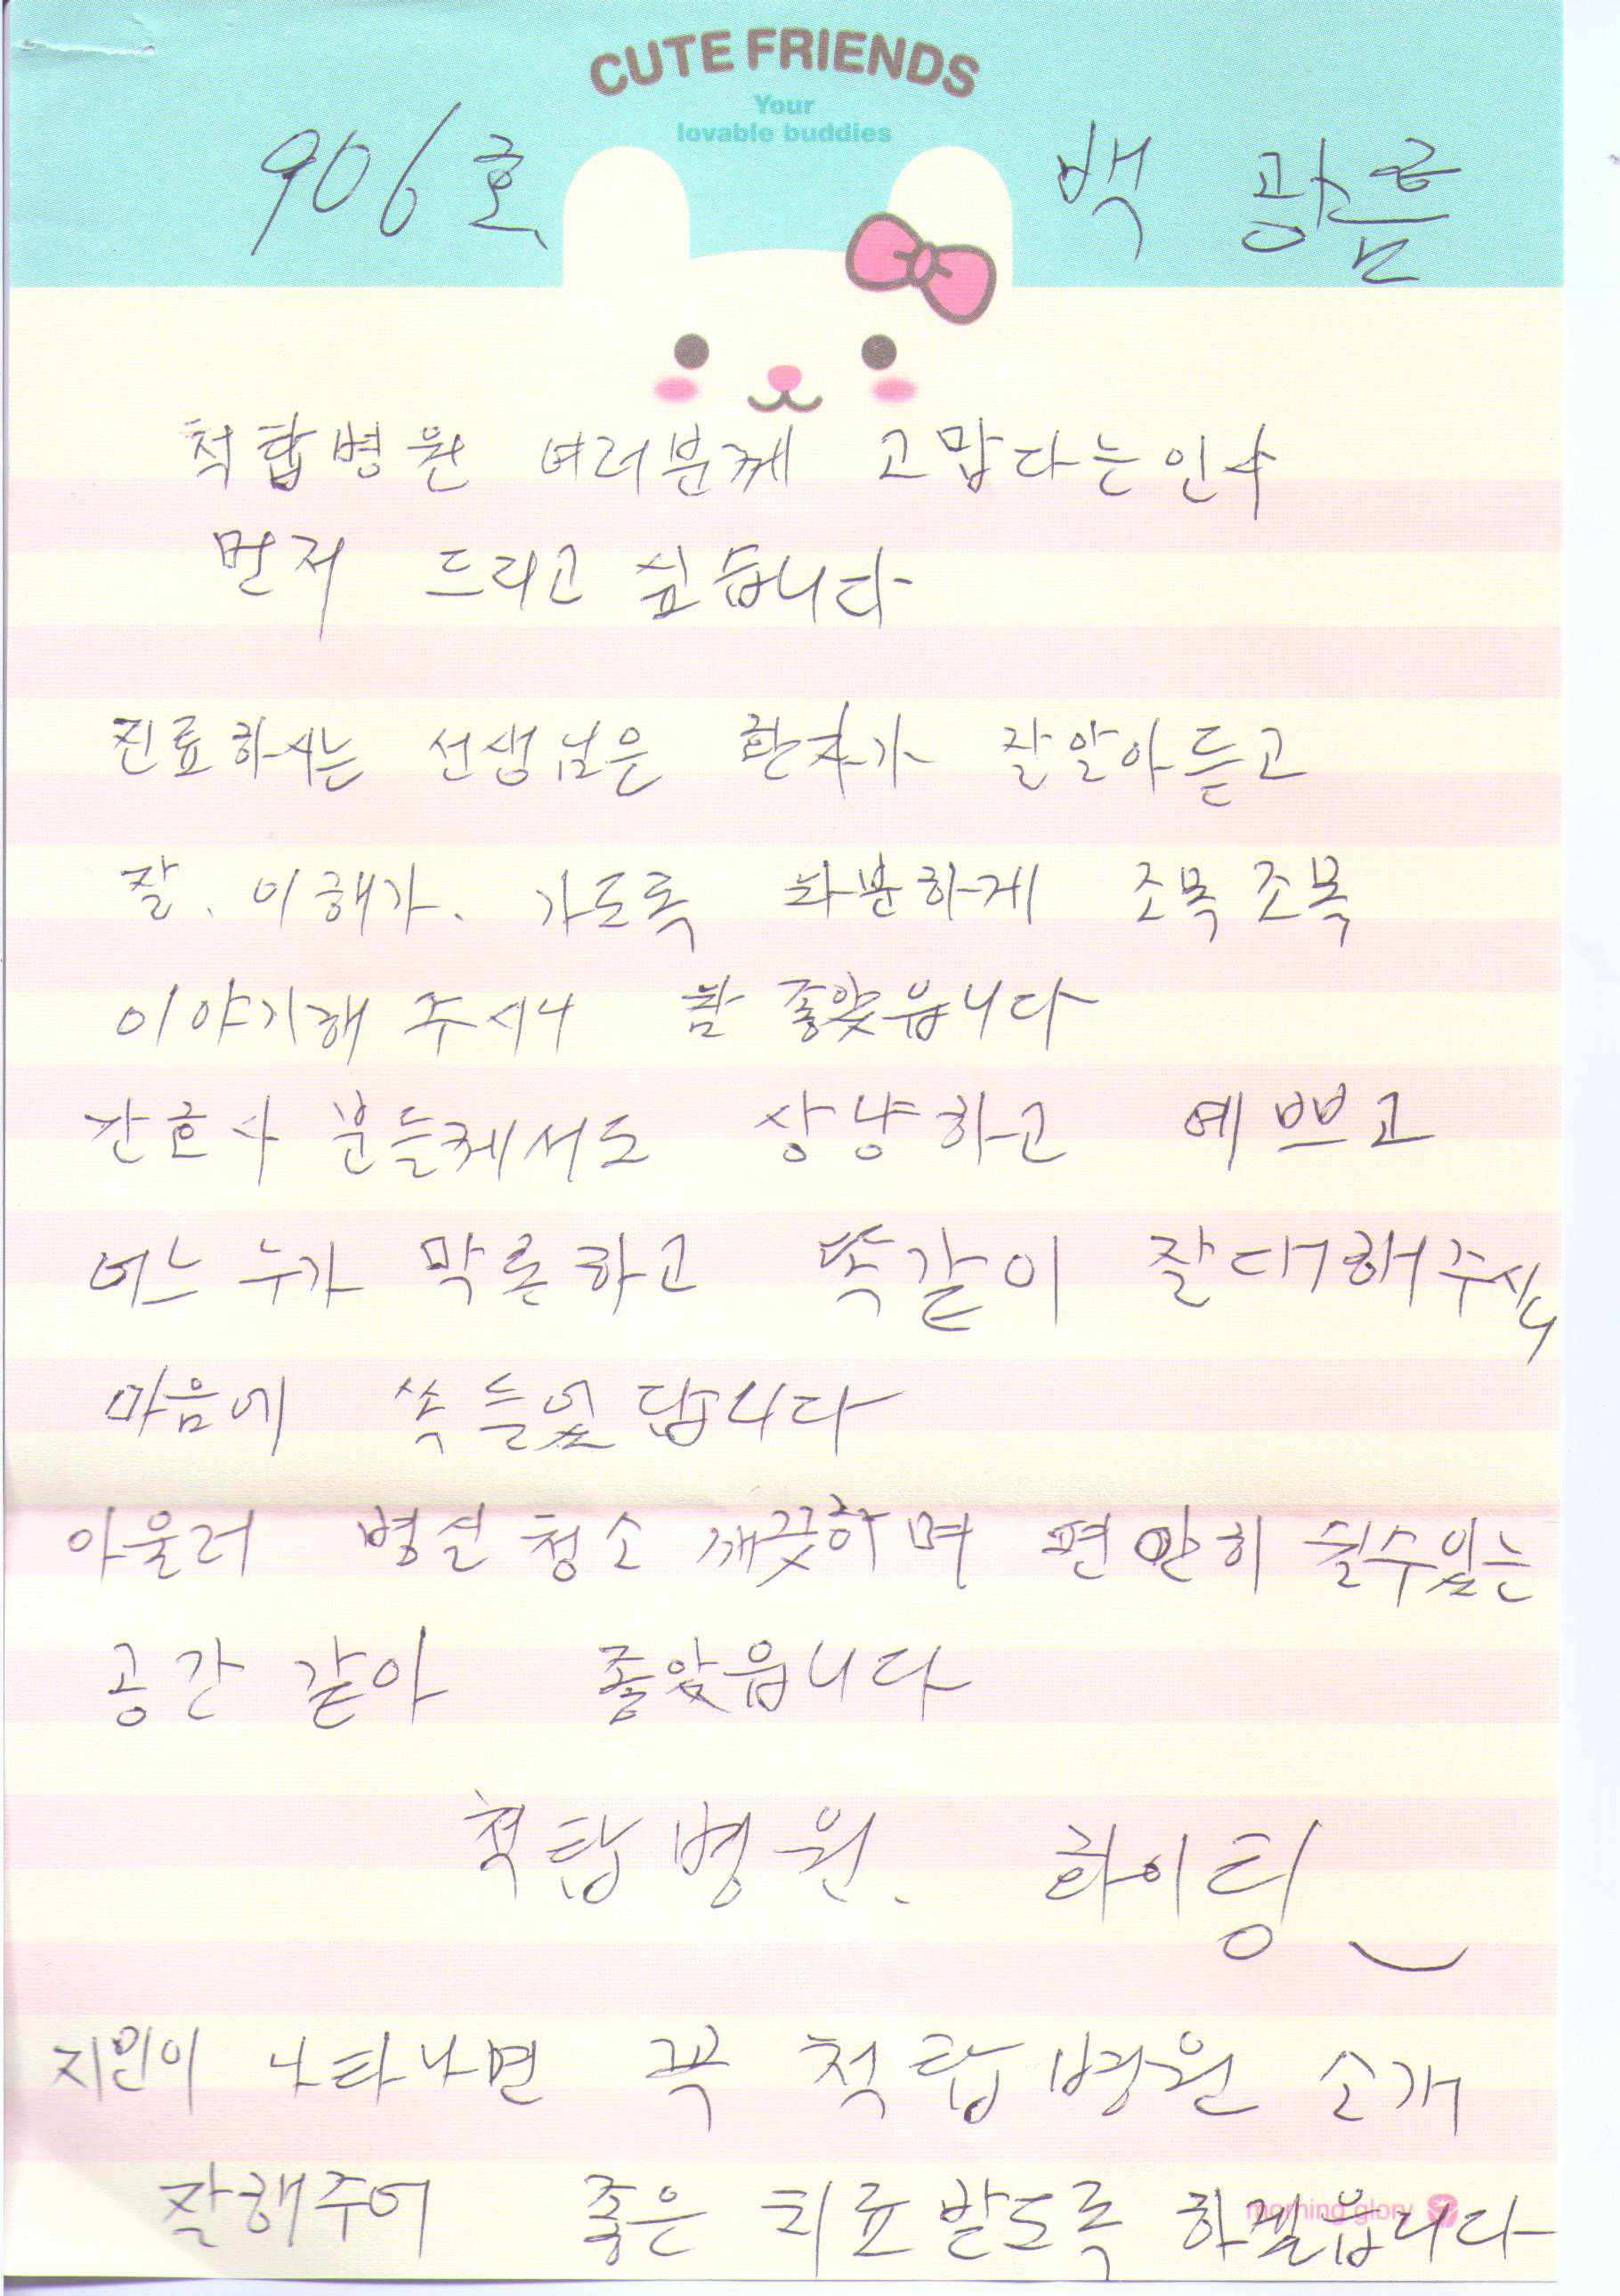 CUTE FRIENDS
Your
lovable buddies
906호 백 광름
척탑병원 여러분께 고맙다는인사
먼저 드리고 싶습니다
진료하시는 선생님은 환자가 잘알아듣고
잘. 이해가. 가도록 차분하게 조목조목
이야기해 주시니 참 좋았읍니다
간호사 분들께서도 상냥하고 예쁘고
어느 누가 막론하고 똑같이 잘대해주시니
마음에 쏙 들었답니다
아울러 병실청소 깨끗하며 편안히 쉴수있는
공간 같아 좋았읍니다
척탑병원. 화이팅
지인이 나타나면 꼭 척탑병원 소개
잘해주어 좋은 치료받도록 하겠읍니다
morning glory